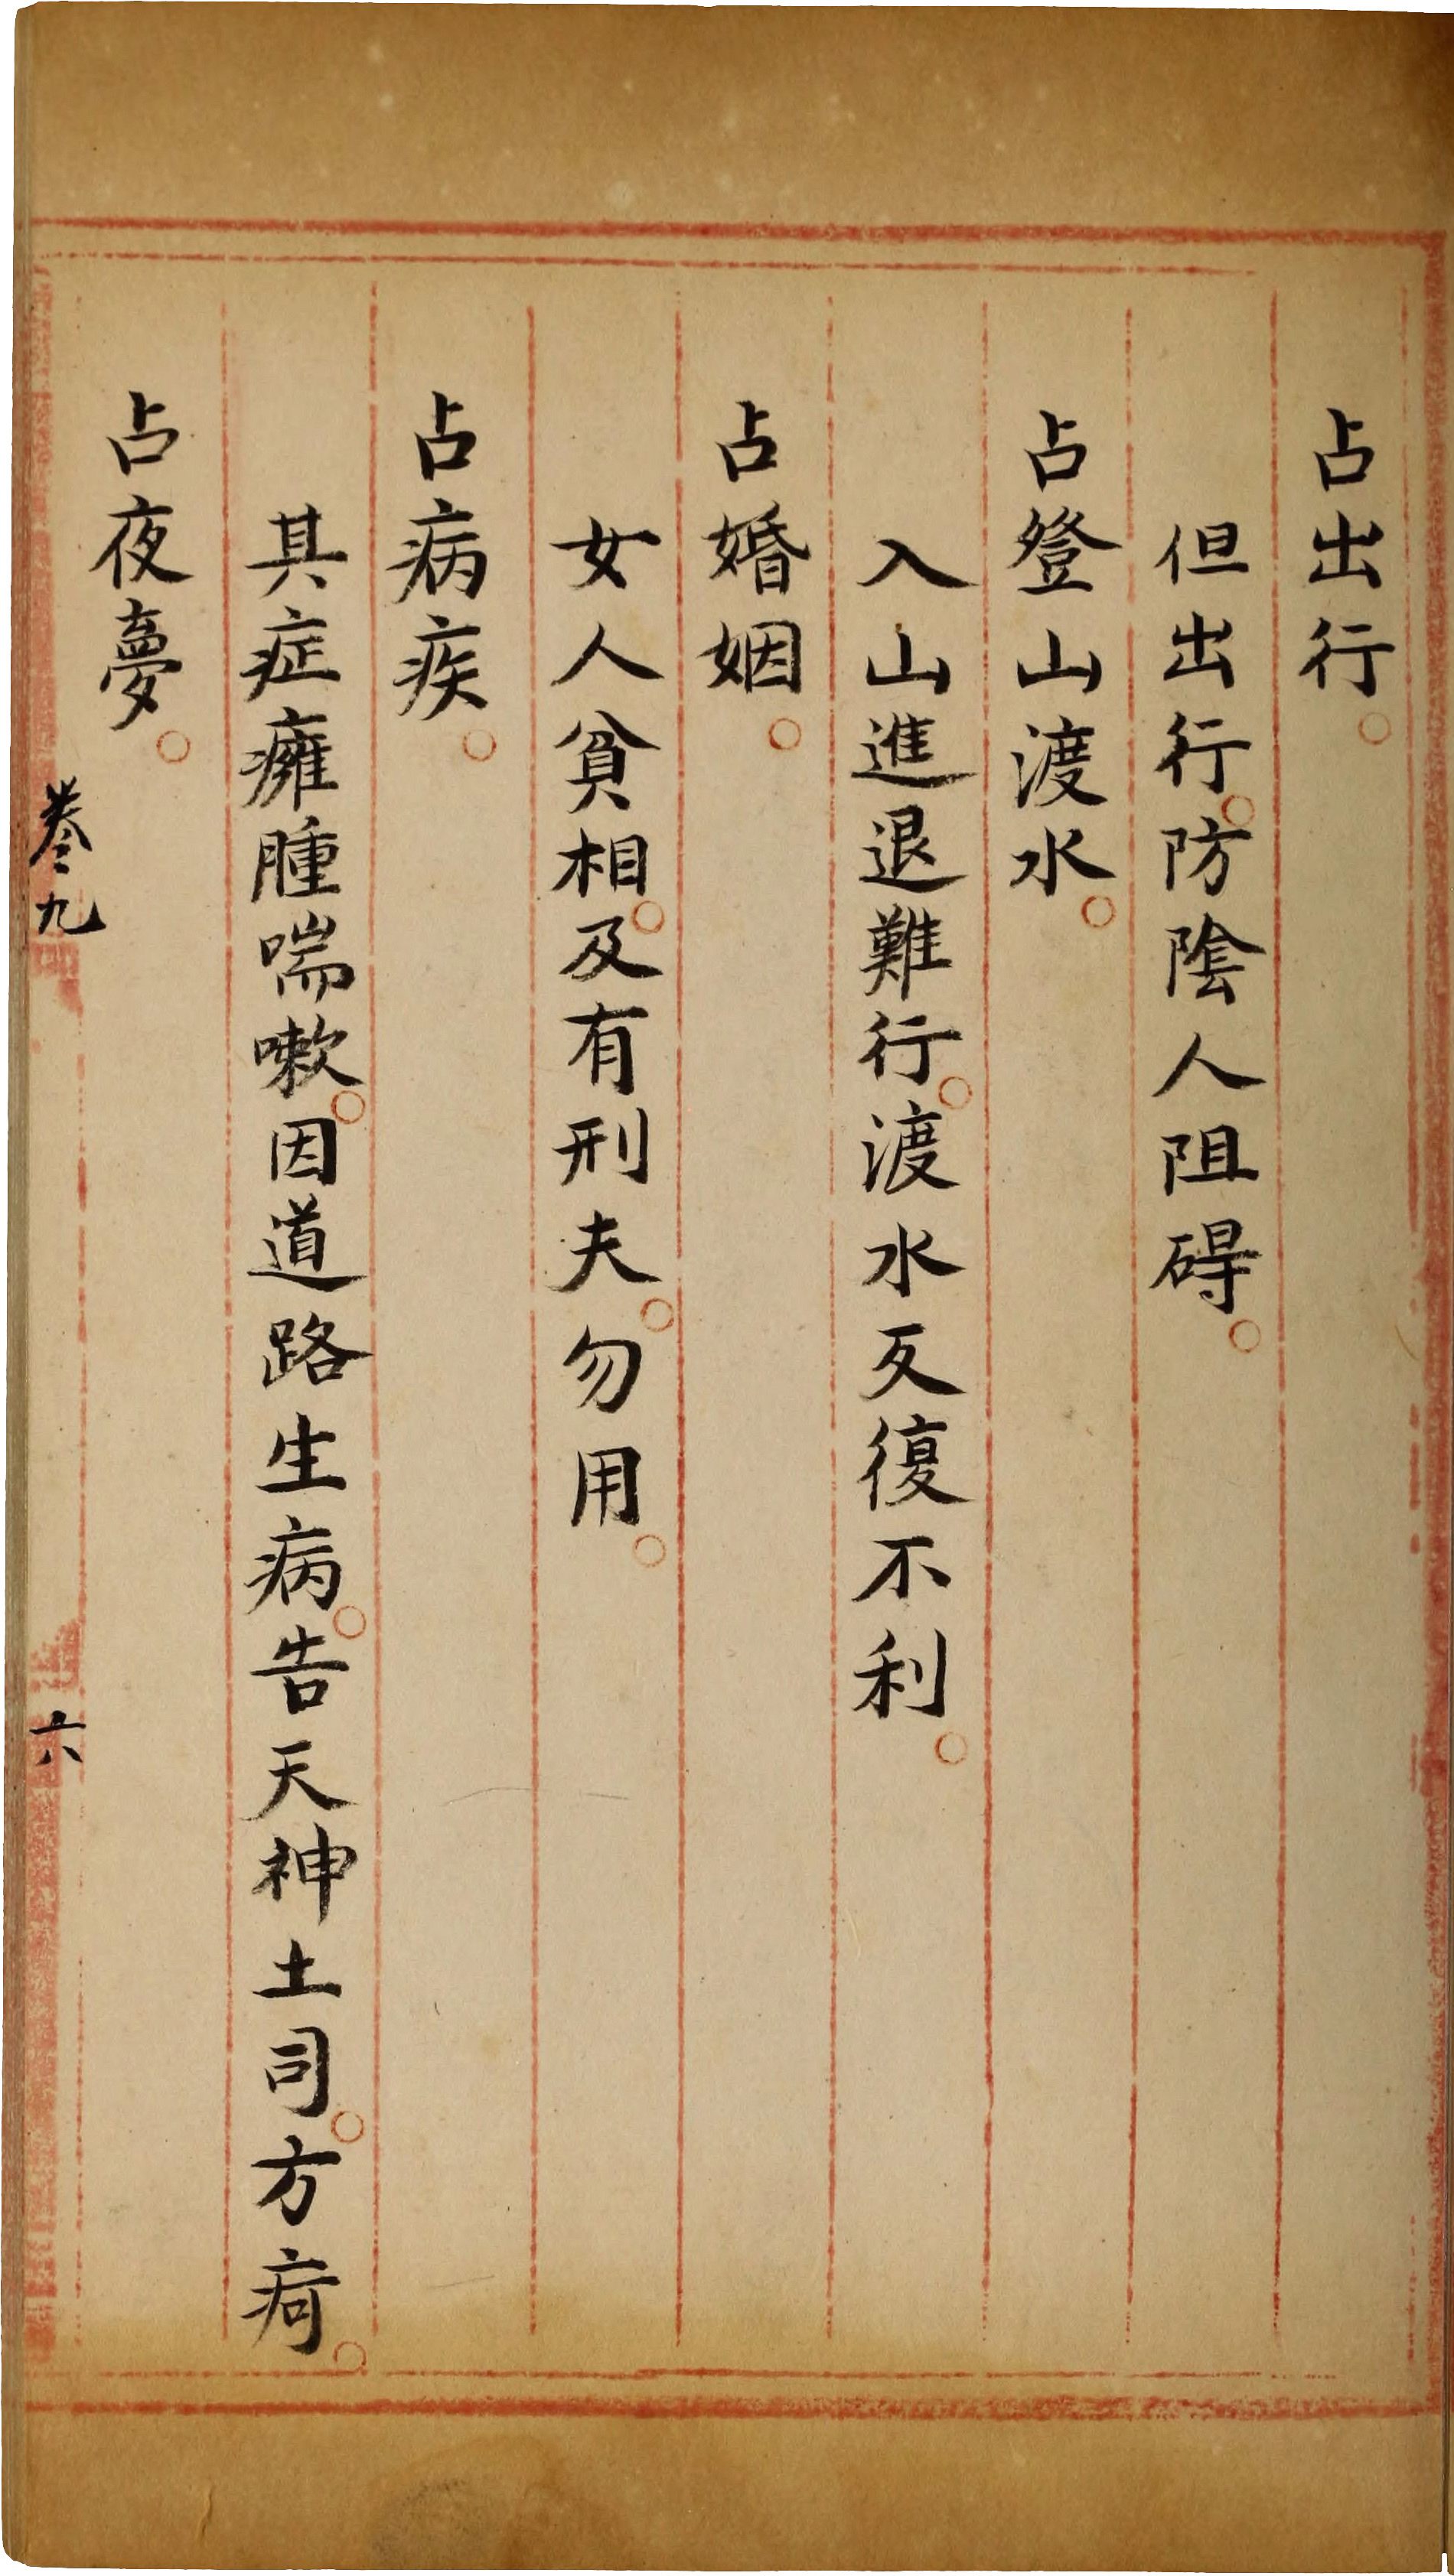 占出行。
但出行。防陰人阻碍。
占登山渡水。
入山進退難行。渡水反復不利。
占婚姻。
女人貧相。及有刑夫。勿用。
占病疾。
其症癰腫喘嗽。因道路生病。告天神土司。方疴。
占夜夢。
卷九
六